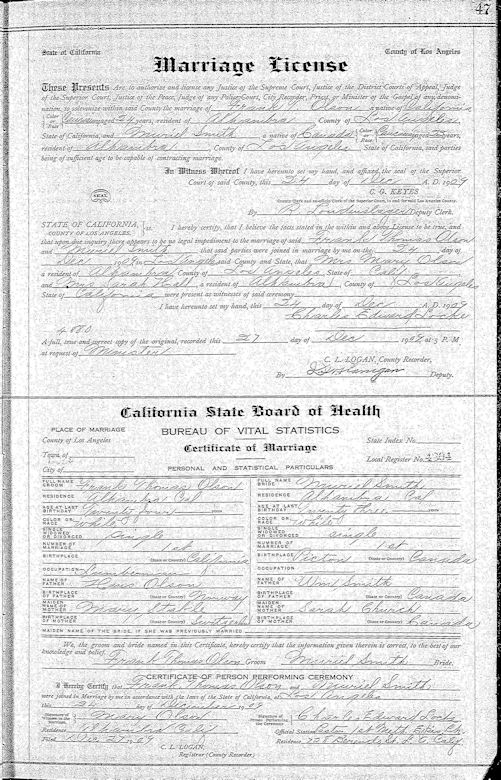 47
State of California County of Los Angeles
Marriage License
These Presents Are to authorize and license any Justice of the Supreme Court, Justice of the District Courts of Appeal, Judge
of the Superior Court, Justice of the Peace, Judge of any Police Court, City Recorder, Priest or Minister of the Gospel of any denomi-
nation, to solemnize within said County the marriage of Frank Thomas Olson a native of California
Color or Race Caucasian aged 24 years, resident of Alhambra County of Los Angeles
State of California, and Muriel Smith a native of Canada Color or Race Caucasian aged years,
resident of Alhambra County of Los Angeles State of California, said parties
being of sufficient age to be capable of contracting marriage.
In Witness Whereof I have hereunto set my hand, and affixed the seal of the Superior
Court of said County, this 24 day of Dec A. D. 1909
SEAL
C. G. KEYES
County Clerk and ex-officio Clerk of the Superior Court, in and for said Los Angeles County.
By Deputy Clerk.
STATE OF CALIFORNIA, ss. I hereby certify, that I believe the facts stated in the within and above License to be true, and
COUNTY OF LOS ANGELES.
that upon due inquiry there appears to be no legal impediment to the marriage of said Frank Thomas Olson
and Muriel Smith that said parties were joined in marriage by me on the 24 day of
Dec 1909 in Los Angeles said County and State, that Mrs Mary Olson
a resident of Alhambra County of Los Angeles State of Calif
and Mrs Sarah Hall a resident of Alhambra County of Los Angeles
State of California were present as witnesses of said ceremony
I have hereunto set my hand, this 24 day of Dec A. D. 1909
Charles Edward Locke
A full, true and correct copy of the original, recorded this 27 day of Dec 1909 at 3 P. M
at request of Minister
C. L. LOGAN, County Recorder,
By Deputy.
California State Board of Health
PLACE OF MARRIAGE BUREAU OF VITAL STATISTICS
County of Los Angeles Certificate of Marriage State Index No.
Town of Local Register No. 4394
City of PERSONAL AND STATISTICAL PARTICULARS
FULL NAME GROOM Frank Thomas Olson FULL NAME BRIDE Muriel Smith
RESIDENCE Alhambra Cal RESIDENCE Alhambra Cal
AGE AT LAST BIRTHDAY Twenty four AGE AT LAST BIRTHDAY Twenty three
COLOR OR RACE White COLOR OR RACE White
SINGLE WIDOWED OR DIVORCED single SINGLE WIDOWED OR DIVORCED single
NUMBER OF MARRIAGE 1st NUMBER OF MARRIAGE 1st
BIRTHPLACE (State or Country) California BIRTHPLACE Picton (State or Country) Canada
OCCUPATION OCCUPATION
NAME OF FATHER Olson NAME OF FATHER Wm Smith
BIRTHPLACE OF FATHER (State or Country) Norway BIRTHPLACE OF FATHER (State or Country) Canada
MAIDEN NAME OF MOTHER Mary MAIDEN NAME OF MOTHER Sarah Church
BIRTHPLACE OF MOTHER (State or Country) BIRTHPLACE OF MOTHER (State or Country) Canada
MAIDEN NAME OF THE BRIDE, IF SHE WAS PREVIOUSLY MARRIED
We, the groom and bride named in this Certificate, hereby certify that the information given therein is correct, to the best of our
knowledge and belief. Frank Thomas Olson Groom Muriel Smith Bride.
CERTIFICATE OF PERSON PERFORMING CEREMONY
I Hereby Certify that Frank Thomas Olson and Muriel Smith
were joined in Marriage by me in accordance with the laws of the State of California, at Los Angeles
this day of December 1909
Signature of Witness to the Marriage Mary Olson Signature of Person Performing the Ceremony Charles Edward Locke
Residence Alhambra Cali Official Station
Filed Dec 27, 09 Residence
C. L. LOGAN,
Registrar (County Recorder.)